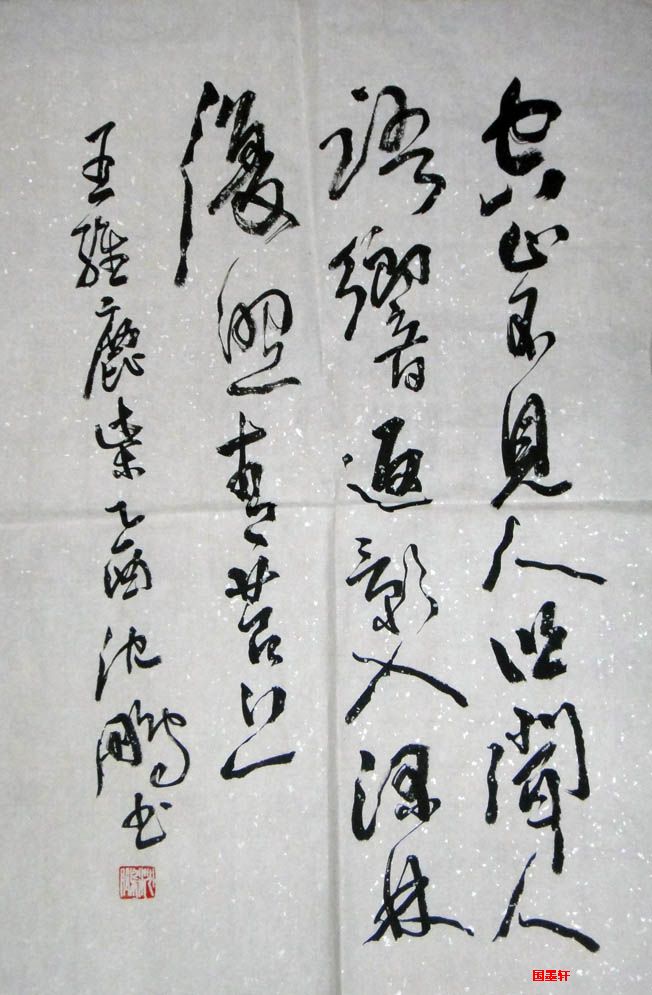 空山不見人但聞人
語響返影入深林
復照青苔上
王維鹿柴乙酉沈鵬书
国墨轩